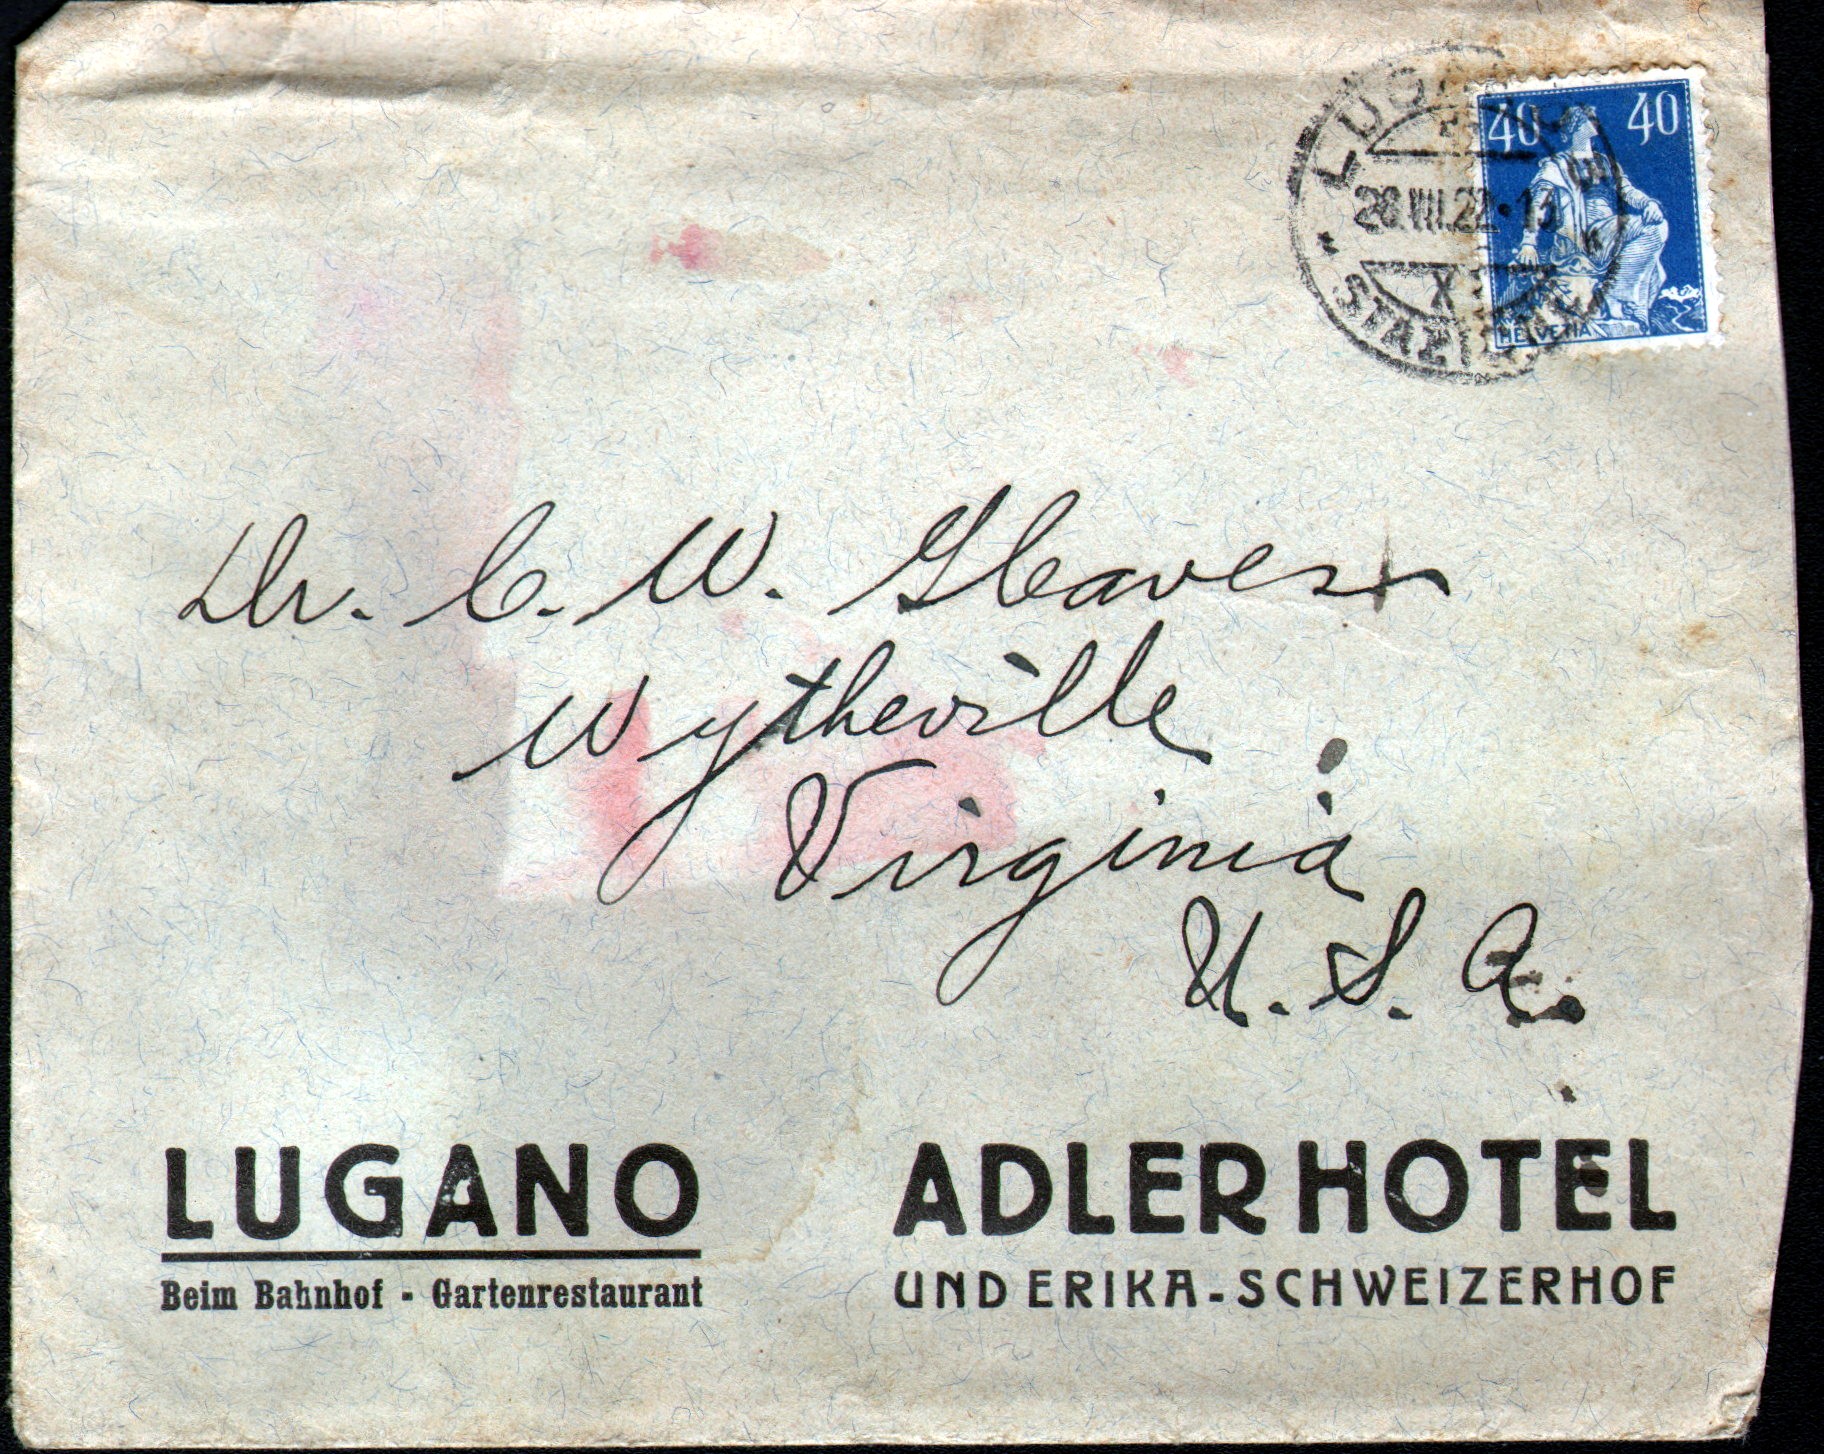 LUGANO
40 40
28.VIII.22·13
X
STAZIONE
HELVETIA
Dr. C. W. Gleaves
Wytheville
Virginia
U. S. A.
LUGANO
Beim Bahnhof - Gartenrestaurant
ADLER HOTEL
UND ERIKA-SCHWEIZERHOF